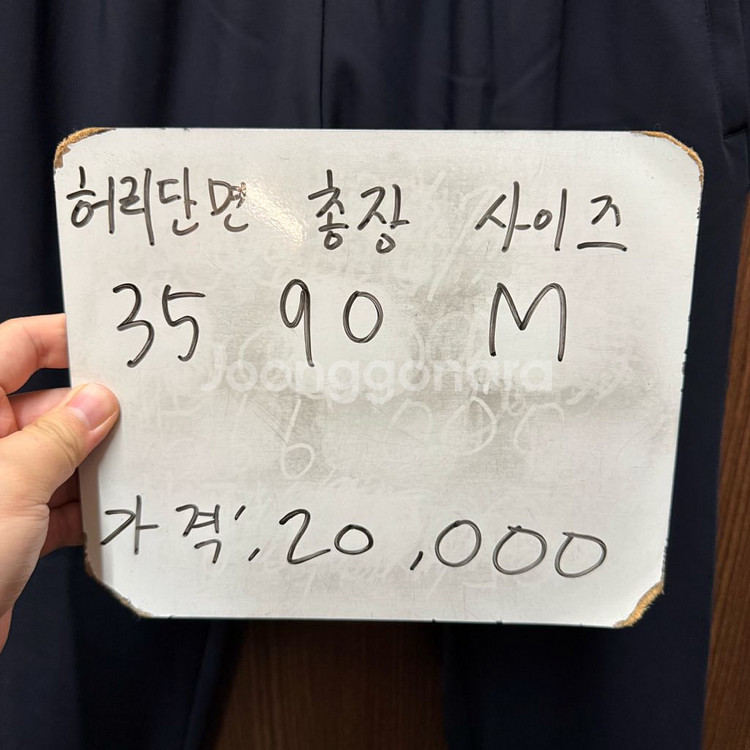 허리단면 총장 사이즈
35 90 M
Joonggonara
가격: 20,000